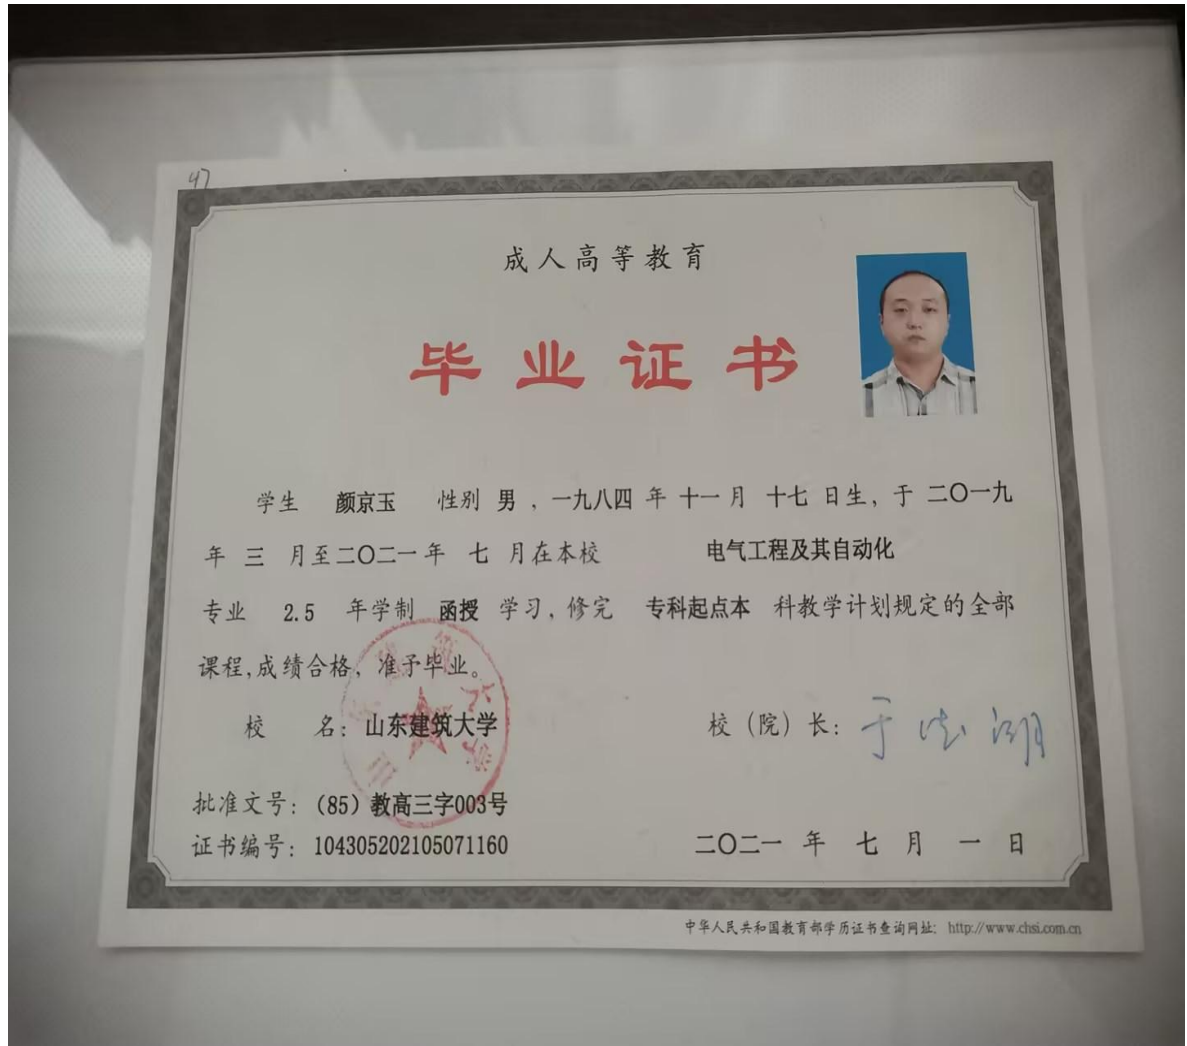 47
成人高等教育
毕业证书
学生 颜京玉 性别 男，一九八四 年 十一 月 十七 日生，于 二〇一九
年 三 月至二〇二一年 七 月在本校 电气工程及其自动化
专业 2.5 年学制 函授 学习，修完 专科起点本 科教学计划规定的全部
课程,成绩合格，准予毕业。
校 名：山东建筑大学 校（院）长：于德湖
批准文号：（85）教高三字003号
证书编号：104305202105071160 二〇二一 年 七 月 一 日
山东建筑大学
中华人民共和国教育部学历证书查询网址：http://www.chsi.com.cn